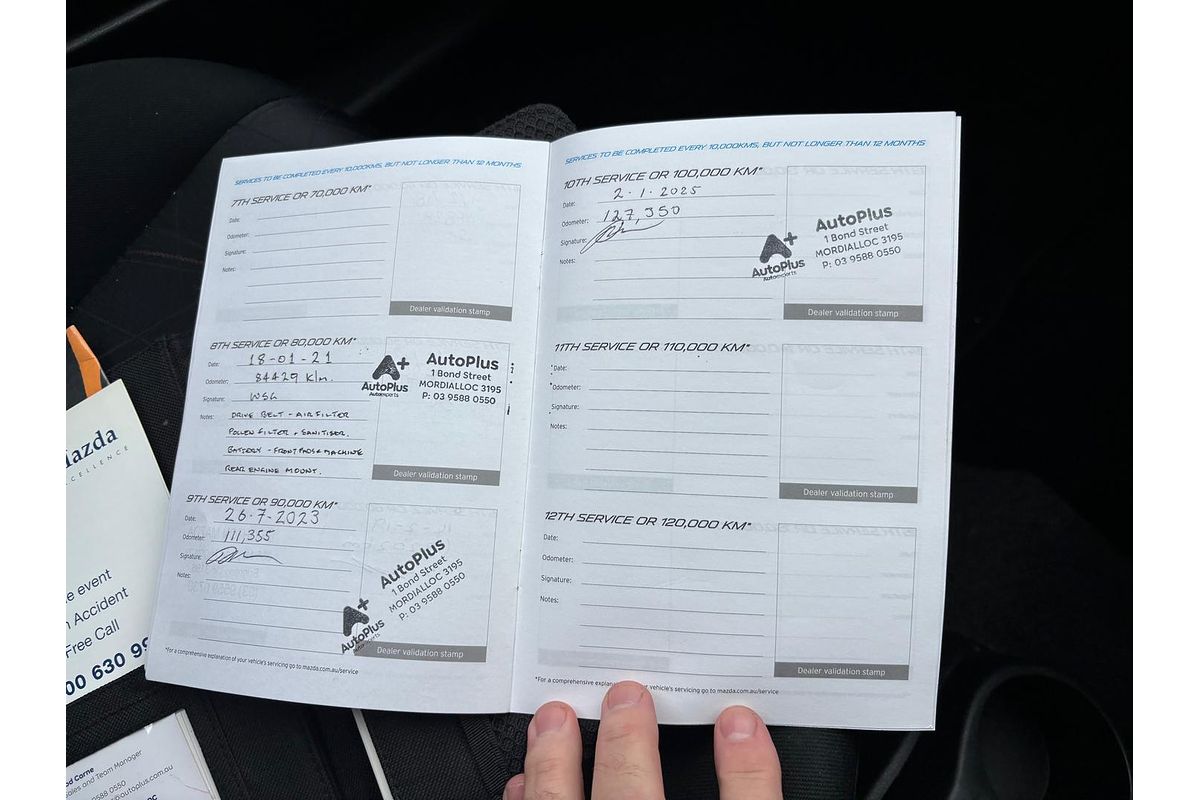 SERVICES TO BE COMPLETED EVERY 10,000KMS, BUT NOT LONGER THAN 12 MONTHS
7TH SERVICE OR 70,000 KM*
Date:
Odometer:
Signature:
Notes:
Dealer validation stamp
8TH SERVICE OR 80,000 KM*
Date: 18-01-21
Odometer: 84429 Klm.
Signature: WSG
Notes: DRIVE BELT - AIR FILTER
POLLEN FILTER + SANITISER.
BATTERY - FRONT PADS + MACHINE
REAR ENGINE MOUNT.
A+
AutoPlus
Autoexperts
AutoPlus
1 Bond Street
MORDIALLOC 3195
P: 03 9588 0550
Dealer validation stamp
9TH SERVICE OR 90,000 KM*
Date: 26-7-2023
Odometer: 111,355
Signature:
Notes:
A+
AutoPlus
Autoexperts
AutoPlus
1 Bond Street
MORDIALLOC 3195
P: 03 9588 0550
Dealer validation stamp
*For a comprehensive explanation of your vehicle's servicing go to mazda.com.au/service
SERVICES TO BE COMPLETED EVERY 10,000KMS, BUT NOT LONGER THAN 12 MONTHS
10TH SERVICE OR 100,000 KM*
Date: 2-1-2025
Odometer: 127,350
Signature:
Notes:
A+
AutoPlus
Autoexperts
AutoPlus
1 Bond Street
MORDIALLOC 3195
P: 03 9588 0550
Dealer validation stamp
11TH SERVICE OR 110,000 KM*
Date:
Odometer:
Signature:
Notes:
Dealer validation stamp
12TH SERVICE OR 120,000 KM*
Date:
Odometer:
Signature:
Notes:
Dealer validation stamp
*For a comprehensive vehicle's servicing go to mazda.com.au/service
event
Accident
Free Call
00 630 99
Corne
and Team Manager
9588 0550
autoplus.com.au